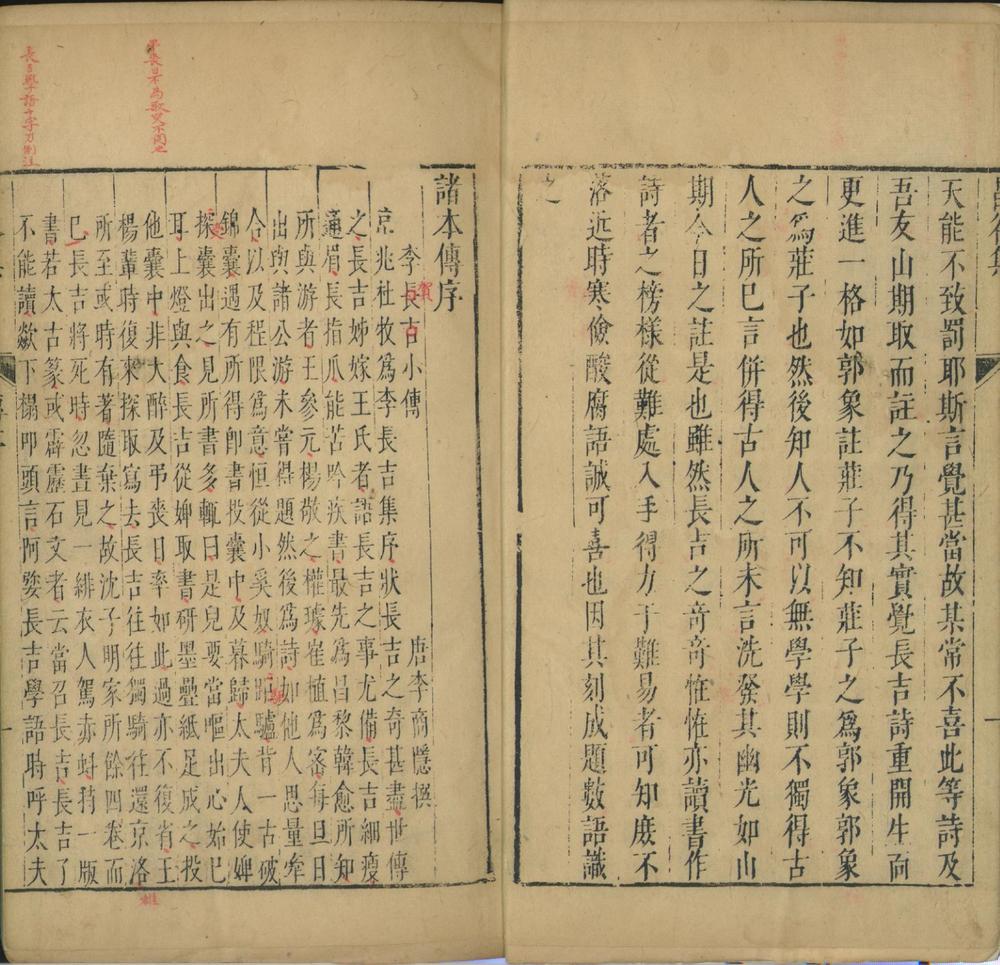 天能不致罰耶斯言覺甚當故某常不喜此等詩及
吾友山期取而註之乃得其實覺長吉詩重開生面
更進一格如郭象註莊子不知莊子之爲郭象郭象
之爲莊子也然後知人不可以無學學則不獨得古
人之所已言併得古人之所未言洗發其幽光如山
期今日之註是也雖然長吉之奇奇恠恠亦讀書作
詩者之榜樣從難處入手得力于難易者可知庶不
落近時寒儉酸腐語誠可喜也因其刻成題數語識
之
諸本傳序
李長吉小傳
唐李商隱撰
京兆杜牧爲李長吉集序狀長吉之奇甚盡世傳
之長吉姊嫁王氏者語長吉之事尤備長吉細瘦
通眉長指爪能苦吟疾書最先爲昌黎韓愈所知
所與游者王參元楊敬之權璩崔植爲客每旦日
出與諸公游未嘗得題然後爲詩如他人思量牽
合以及程限爲意恒從小奚奴騎距驢背一古破
錦囊遇有所得卽書投囊中及暮歸太夫人使婢
探囊出之見所書多輒曰是兒要當嘔出心始已
耳上燈與食長吉從婢取書研墨疊紙足成之投
他囊中非大醉及弔喪日率如此過亦不復省王
楊輩時復來探取寫去長吉往往獨騎往還京洛
所至或時有著隨棄之故沈子明家所餘四卷而
已長吉將死時忽晝見一緋衣人駕赤虯持一版
書若太古篆或霹靂石文者云當召長吉長吉了
不能讀歘下榻叩頭言阿㜷長吉學語時呼太夫